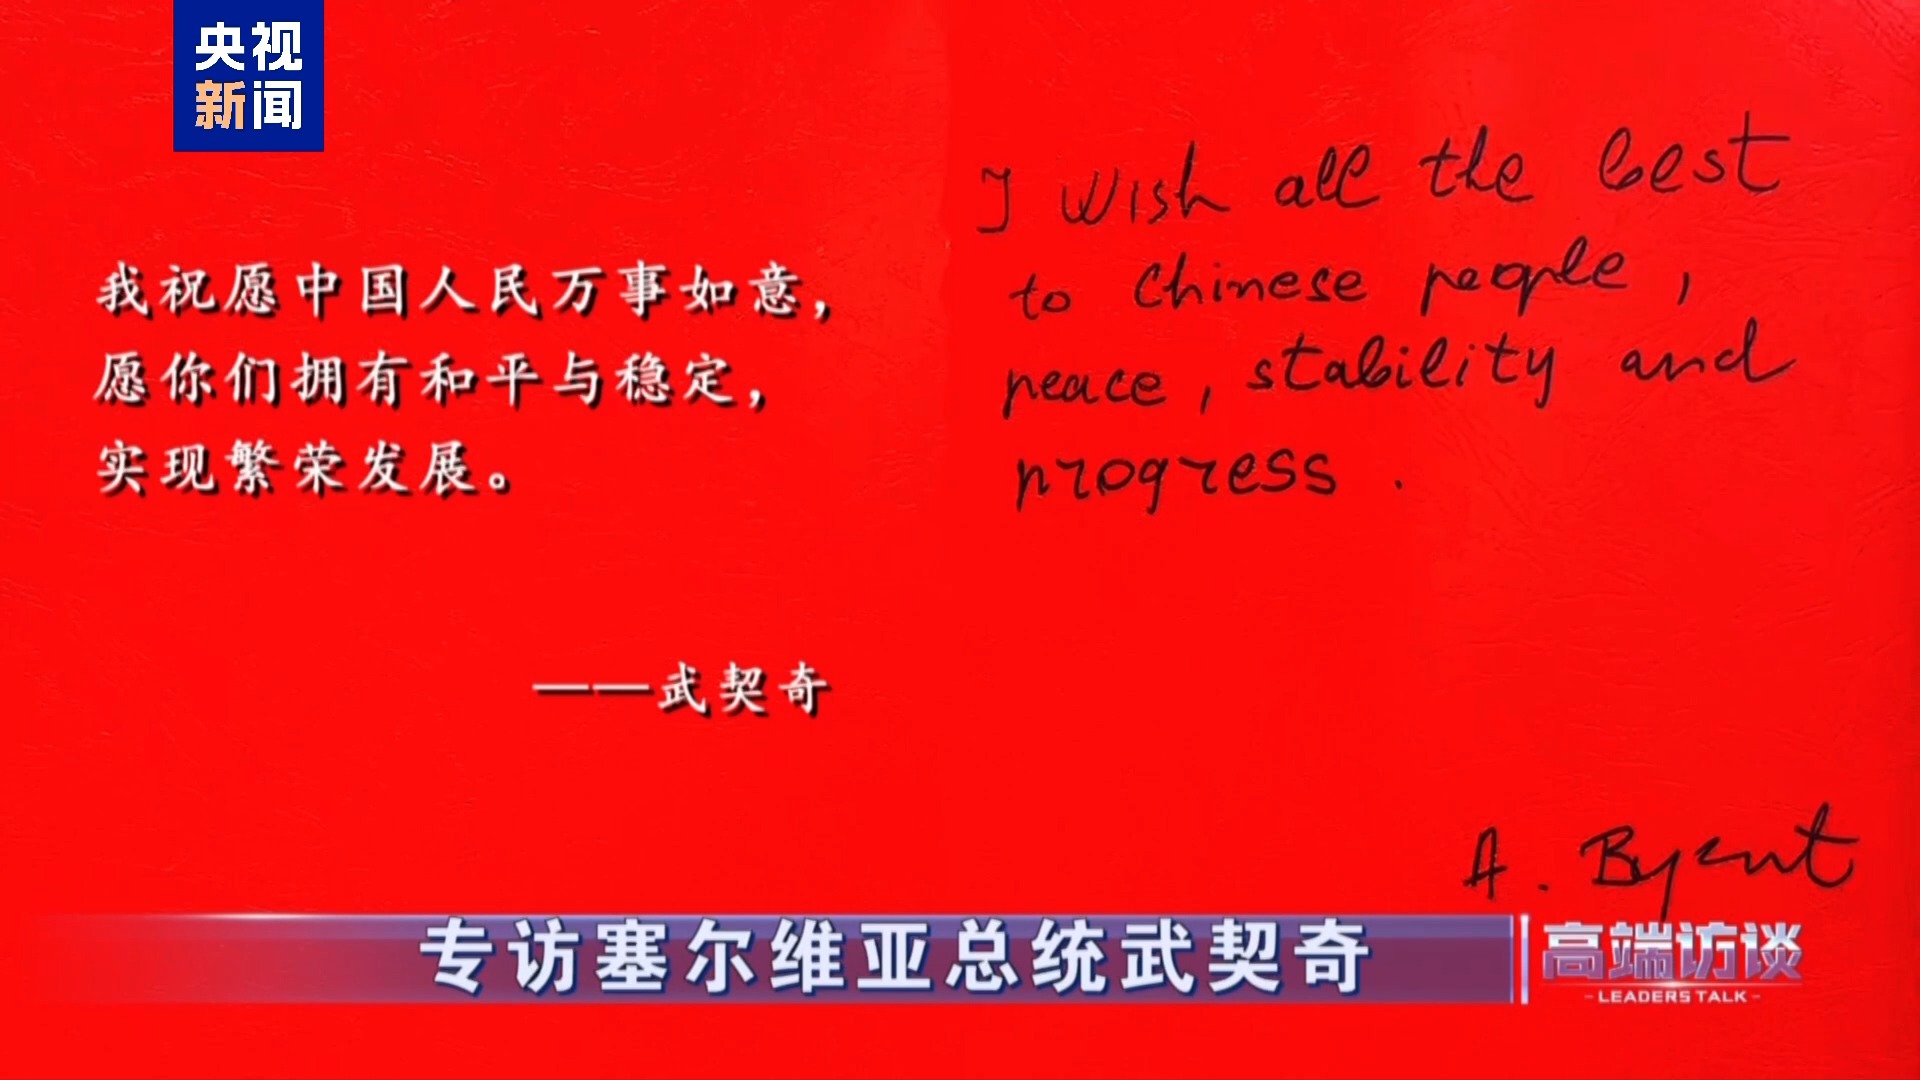 央视
新闻
我祝愿中国人民万事如意，
愿你们拥有和平与稳定，
实现繁荣发展。
——武契奇
I wish all the best
to Chinese people,
peace, stability and
progress.
А. Вучић
专访塞尔维亚总统武契奇
高端访谈
-LEADERS TALK-